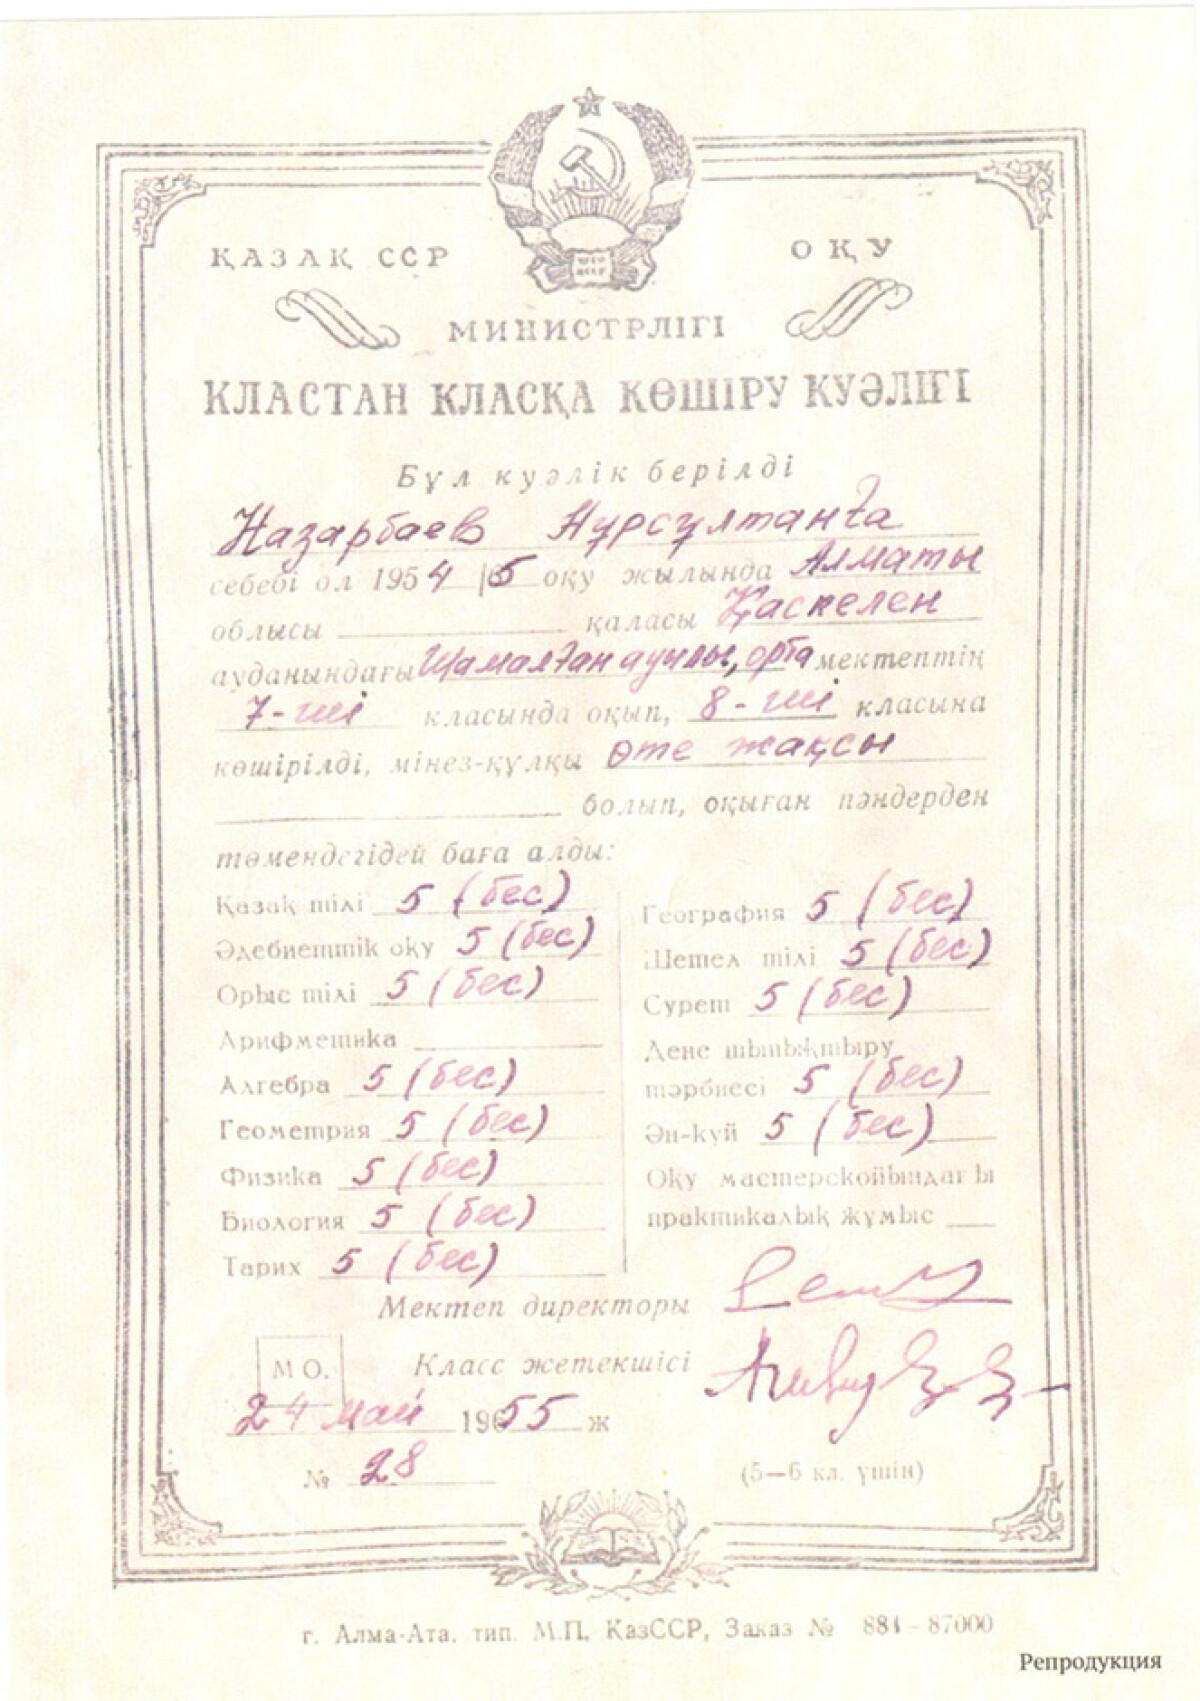 ҚАЗАҚ ССР ОҚУ
МИНИСТРЛІГІ
КЛАСТАН КЛАСҚА КӨШІРУ КУӘЛІГІ
Бұл куәлік берілді
Назарбаев Нұрсұлтанға
себебі ол 1954/5 оқу жылында Алматы
облысы ______ қаласы Қаскелен
ауданындағы Шамалған ауылы, орта мектептің
7-ші класында оқып, 8-ші класына
көшірілді, мінез-құлқы өте жақсы
______ болып, оқыған пәндерден
төмендегідей баға алды:
Қазақ тілі 5 (бес)
Әдебиеттік оқу 5 (бес)
Орыс тілі 5 (бес)
Арифметика ______
Алгебра 5 (бес)
Геометрия 5 (бес)
Физика 5 (бес)
Биология 5 (бес)
Тарих 5 (бес)
География 5 (бес)
Шетел тілі 5 (бес)
Сурет 5 (бес)
Дене шынықтыру
тәрбиесі 5 (бес)
Ән-күй 5 (бес)
Оқу мастерскойындағы
практикалық жұмыс ___
Мектеп директоры
МО. Класс жетекшісі
24 май 1955 ж
№ 28
(5—6 кл. үшін)
г. Алма-Ата. тип. М.П. КазССР, Заказ № 884-87000
Репродукция